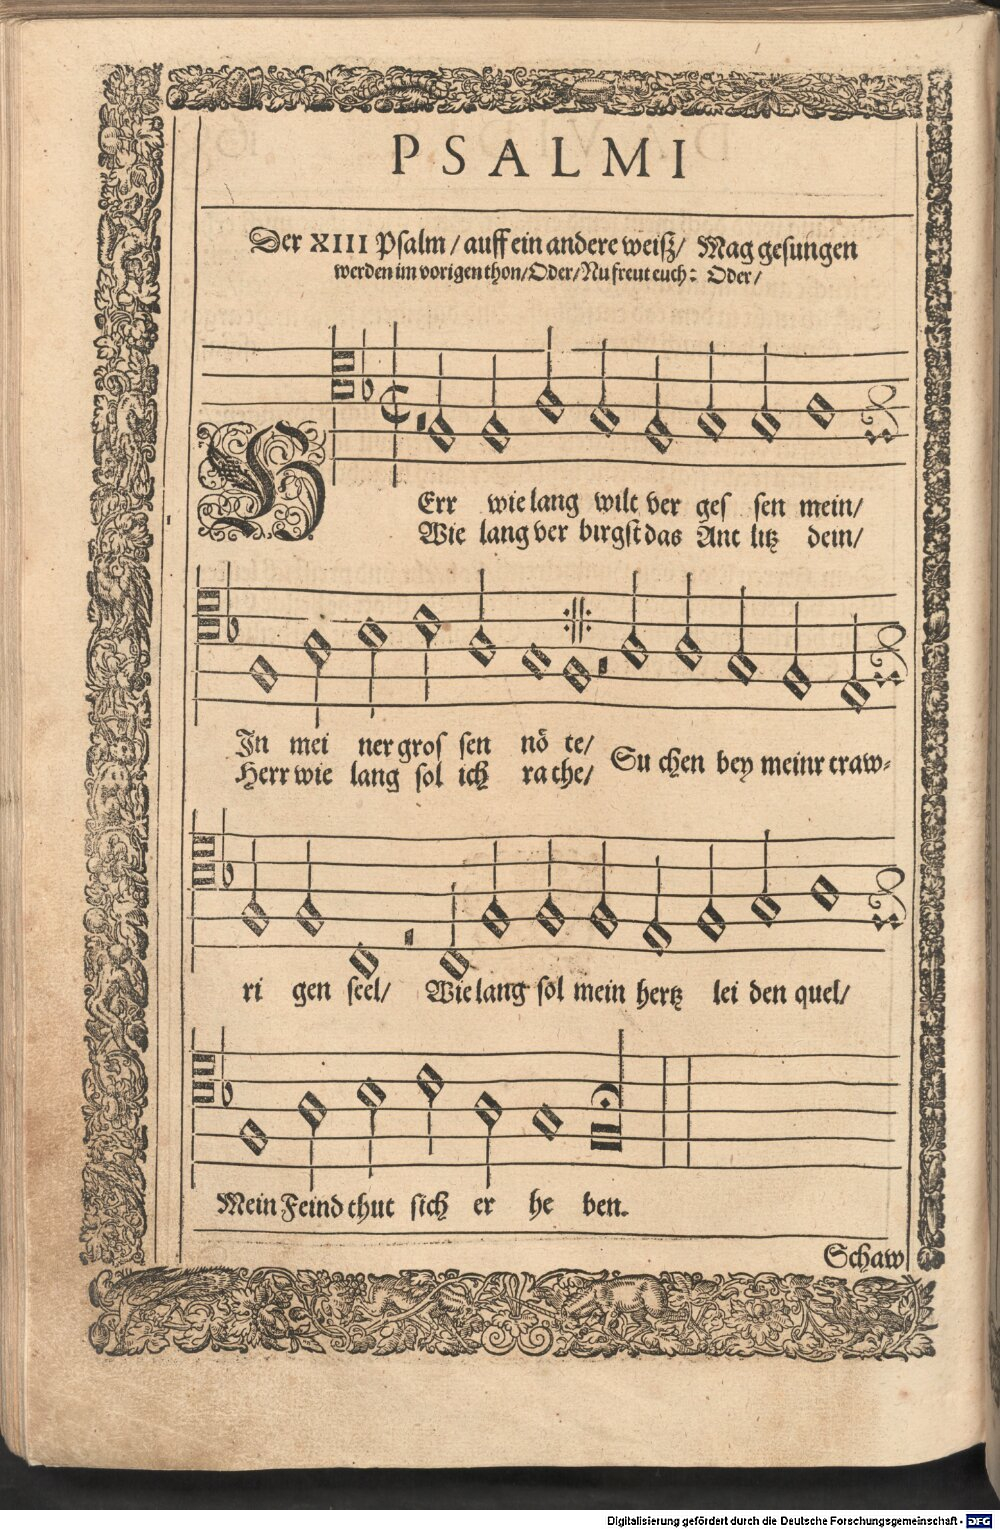 PSALMI
Der XIII Psalm / auff ein andere weiß / Mag gesungen
werden im vorigen thon / Oder / Nu freut euch: Oder /
HErr wie lang wilt ver ges sen mein /
Wie lang ver birgst das Ant litz dein /
In mei ner gros sen nö te /
Herr wie lang sol ich ra che /
Su chen bey meinr traw-
ri gen seel / Wie lang sol mein hertz lei den quel /
Mein Feind thut sich er he ben.
Schaw
Digitalisierung gefördert durch die Deutsche Forschungsgemeinschaft - DFG